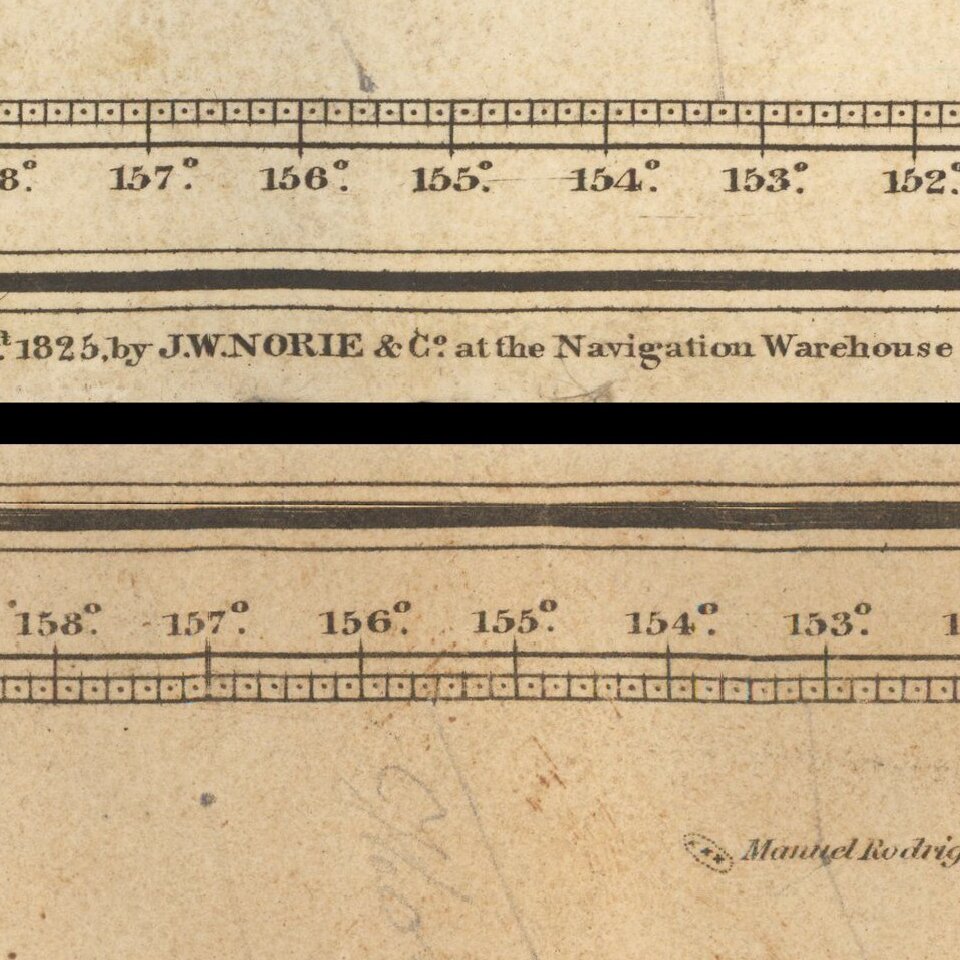 8°. 157°. 156°. 155°. 154°. 153°. 152°.
t. 1825, by J.W. NORIE & Co. at the Navigation Warehouse
158°. 157°. 156°. 155°. 154°. 153°. 1
Manuel Rodrig